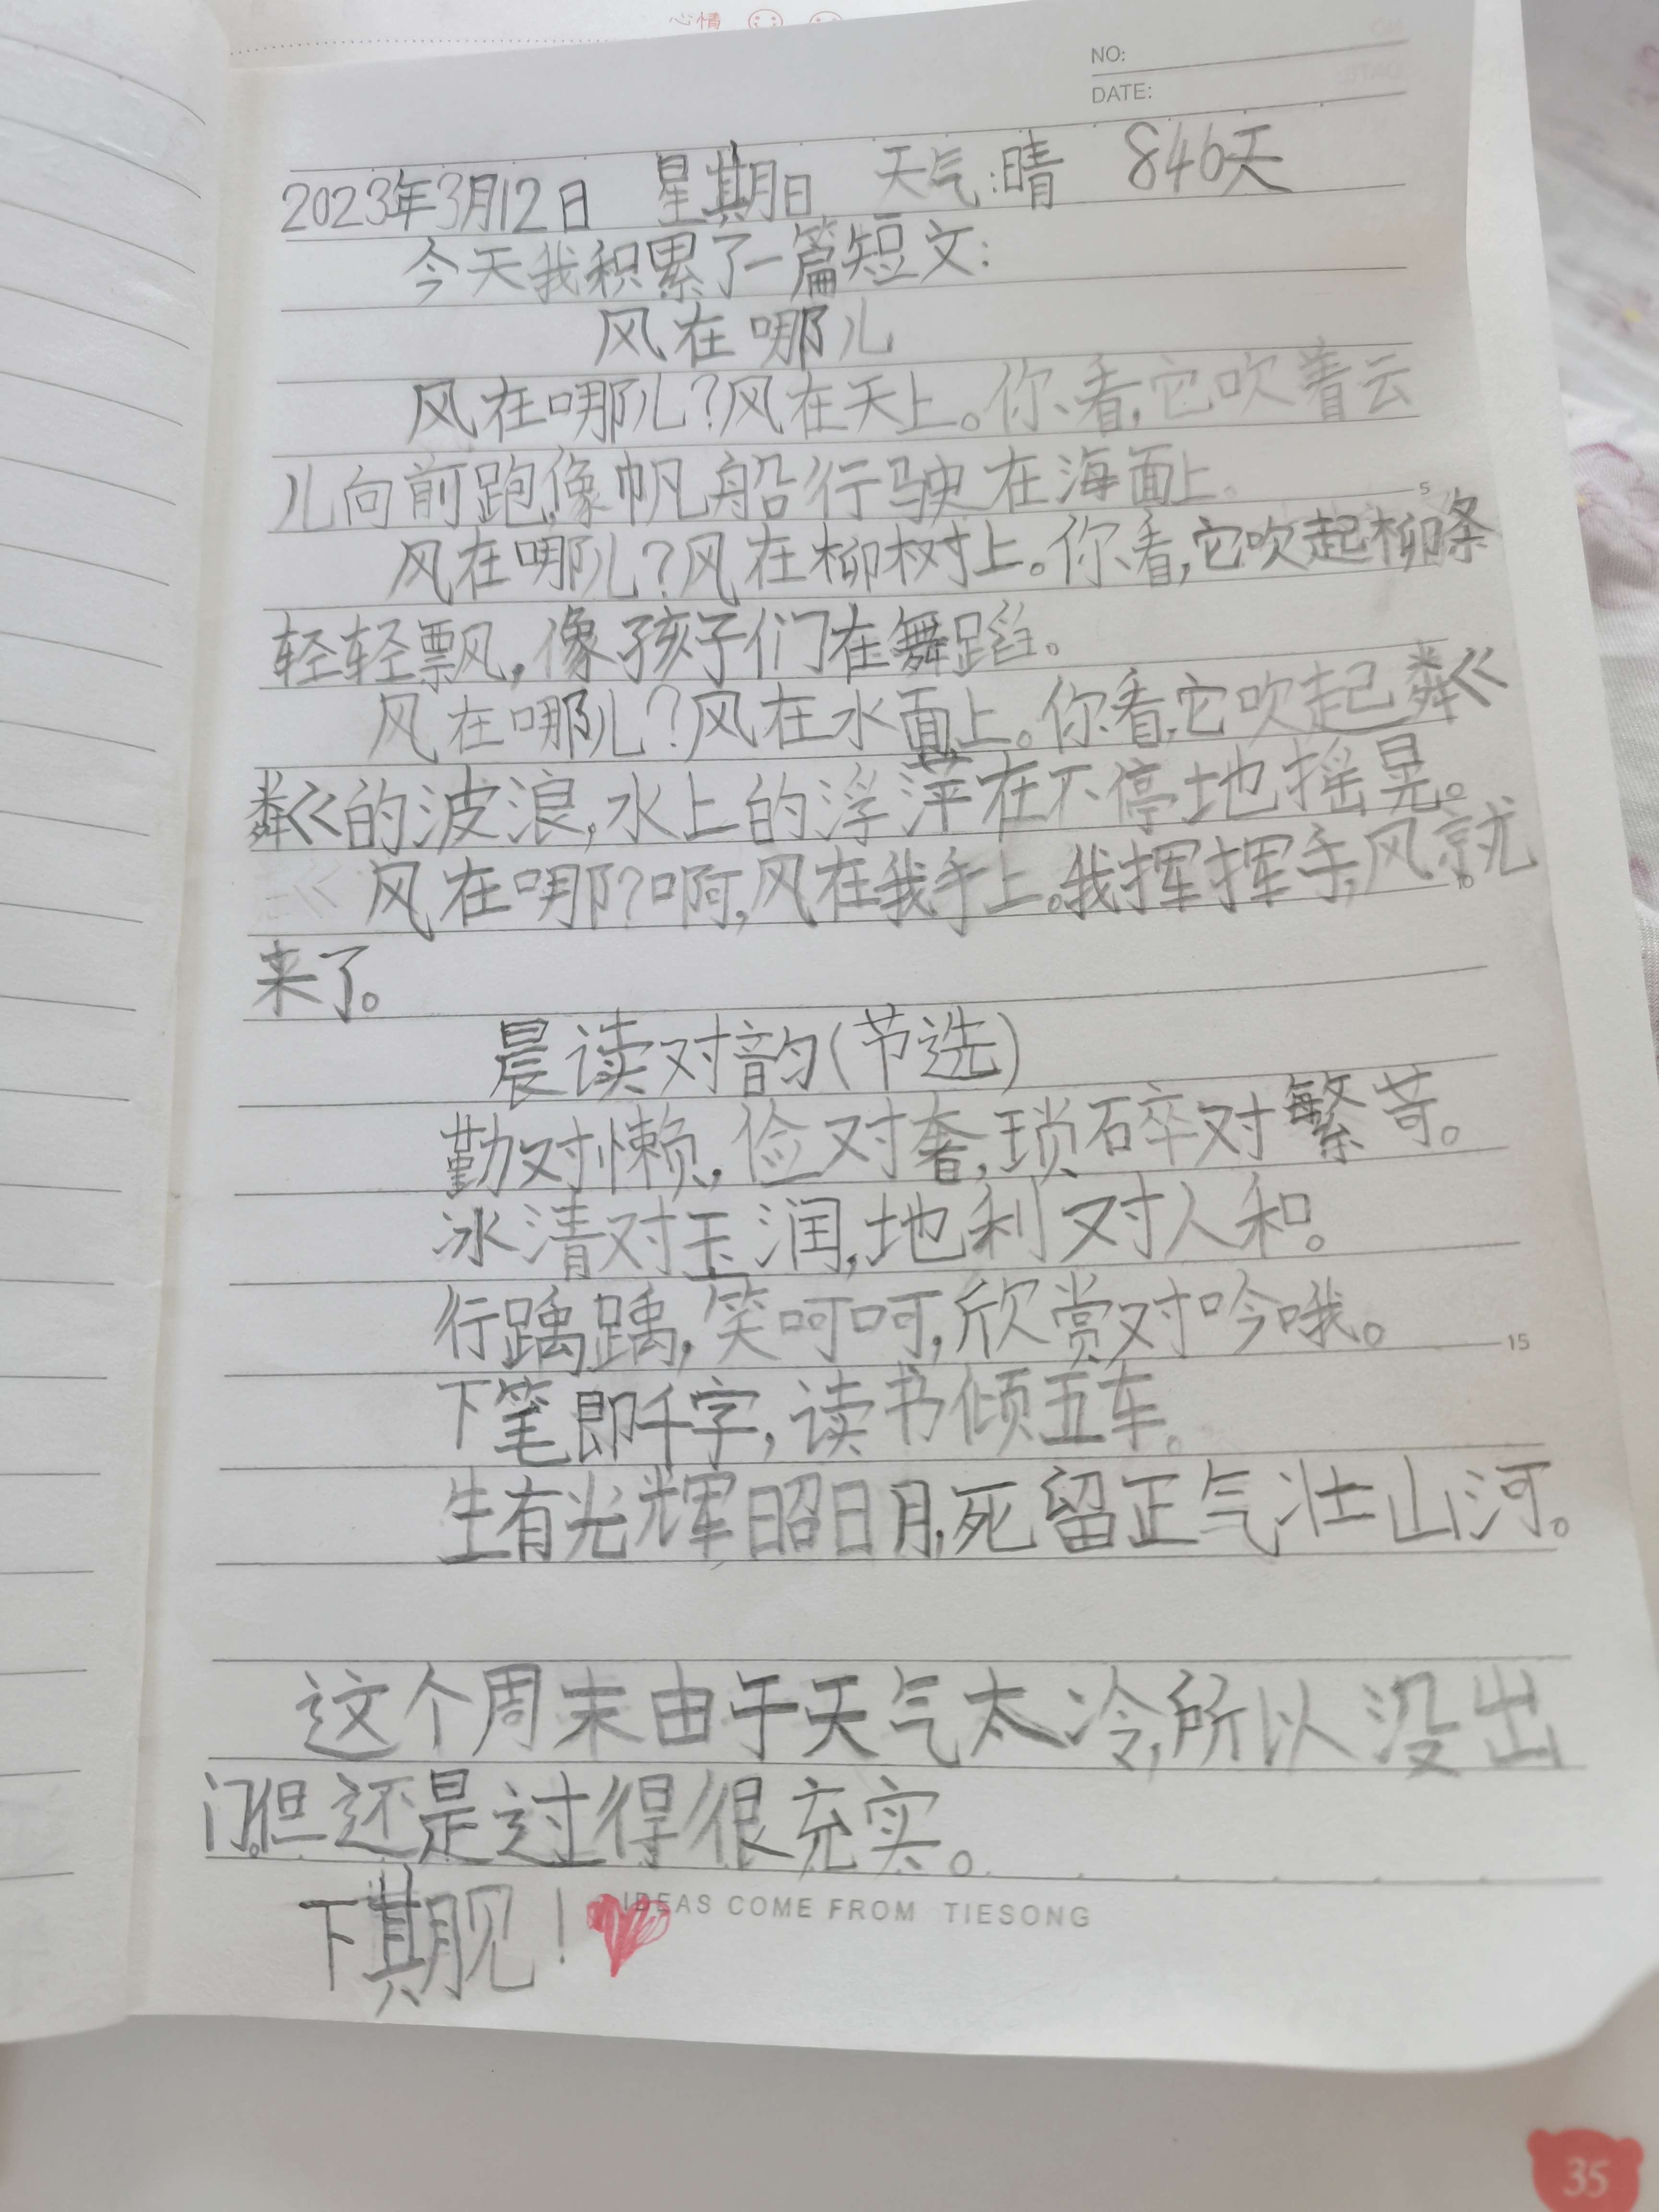 心情
NO:
DATE:
2023年3月12日 星期日 天气:晴 846天
今天我积累了一篇短文:
风在哪儿
风在哪儿?风在天上。你看,它吹着云
儿向前跑,像帆船行驶在海面上。
5
风在哪儿?风在柳树上。你看,它吹起柳条
轻轻飘,像孩子们在舞蹈。
风在哪儿?风在水面上。你看,它吹起粼
粼的波浪,水上的浮萍在不停地摇晃。
风在哪?啊,风在我手上。我挥挥手,风就
10
来了。
晨读对韵(节选)
勤对懒,俭对奢,琐碎对繁苛。
冰清对玉润,地利对人和。
行踽踽,笑呵呵,欣赏对吟哦。
15
下笔即千字,读书倾五车。
生有光辉昭日月,死留正气壮山河。
这个周末由于天气太冷,所以没出
门。但还是过得很充实。
下期见!
IDEAS COME FROM TIESONG
35